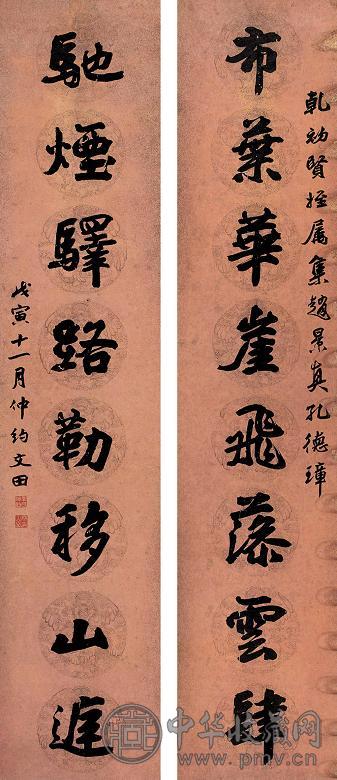 賢姪属集趙景真孔德璋
布葉華崖飛藻雲肆
馳煙驛路勒移山庭
戊寅十一月仲約文田
中华收藏网
www.pmv.cn